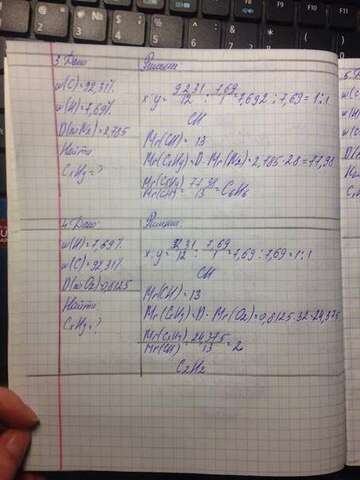 3 Дано
Решение
w(C)=92,31%
w(H)=7,69%
D(поN2)=2,785
Найти
CxHy=?
x:y=92,31/12:7,69/1=7,692:7,69=1:1
CH
Mr(CH)=13
Mr(CxHy)=D·Mr(N2)=2,785·28=77,98
Mr(CxHy)/Mr(CH)=77,98/13=C6H6
4 Дано
Решение
w(H)=7,69%
w(C)=92,31%
D(поO2)=0,8125
Найти
CxHy=?
x:y=92,31/12:7,69/1=7,69:7,69=1:1
CH
Mr(CH)=13
Mr(CxHy)=D·Mr(O2)=0,8125·32=24,375
Mr(CxHy)/Mr(CH)=24,375/13=2
C2H2